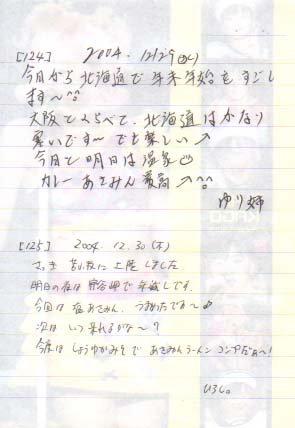 [124] 2004. 12/29(水)
今日から北海道で年末年始をすごし
ます~^^
大阪とくらべて、北海道はかなり
寒いです~でも楽しい↗
今日と明日は温泉
カレーあさみん最高↗^^
ゆり姉
[125] 2004. 12. 30 (木)
さっき苫小牧に上陸しました。
明日の夜は宗谷岬で年越しです。
今回は塩あさみん、うまかったでぁ~
次はいつ来れるかな~?
今度はしょうゆかみそで あさみんラーメン コンプだぁ~!
ひろし。